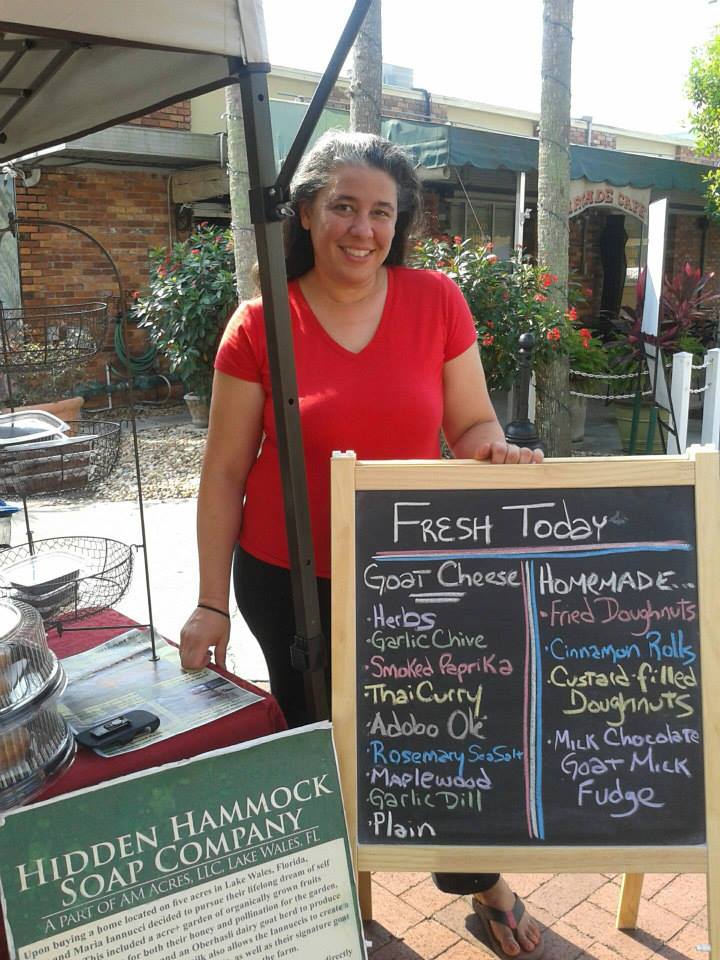 ARCADE CAFE
FRESH TODAY
GOAT CHEESE
• HERBS
• GARLIC CHIVE
• SMOKED PAPRIKA
THAI CURRY
• ADOBO OLÉ
• ROSEMARY SEA SALT
• MAPLEWOOD
• GARLIC DILL
• PLAIN
HOMEMADE...
• FRIED DOUGHNUTS
• CINNAMON ROLLS
• CUSTARD-FILLED
DOUGHNUTS
• MILK CHOCOLATE
GOAT MILK
FUDGE
HIDDEN HAMMOCK
SOAP COMPANY
A PART OF AM ACRES, LLC, LAKE WALES, FL
Upon buying a home located on five acres in Lake Wales, Florida,
and Maria Iannucci decided to pursue their lifelong dream of self
This included a acre+ garden of organically grown fruits
for both their honey and pollination for the garden,
and an Oberhasli dairy goat herd to produce
milk also allows the Iannuccis to create
as well as their signature goat
the farm.
directly